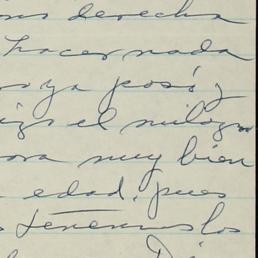 derecha
hacer nada
ya pasó y
el milagro
ora muy bien
edad, pues
tenemos los